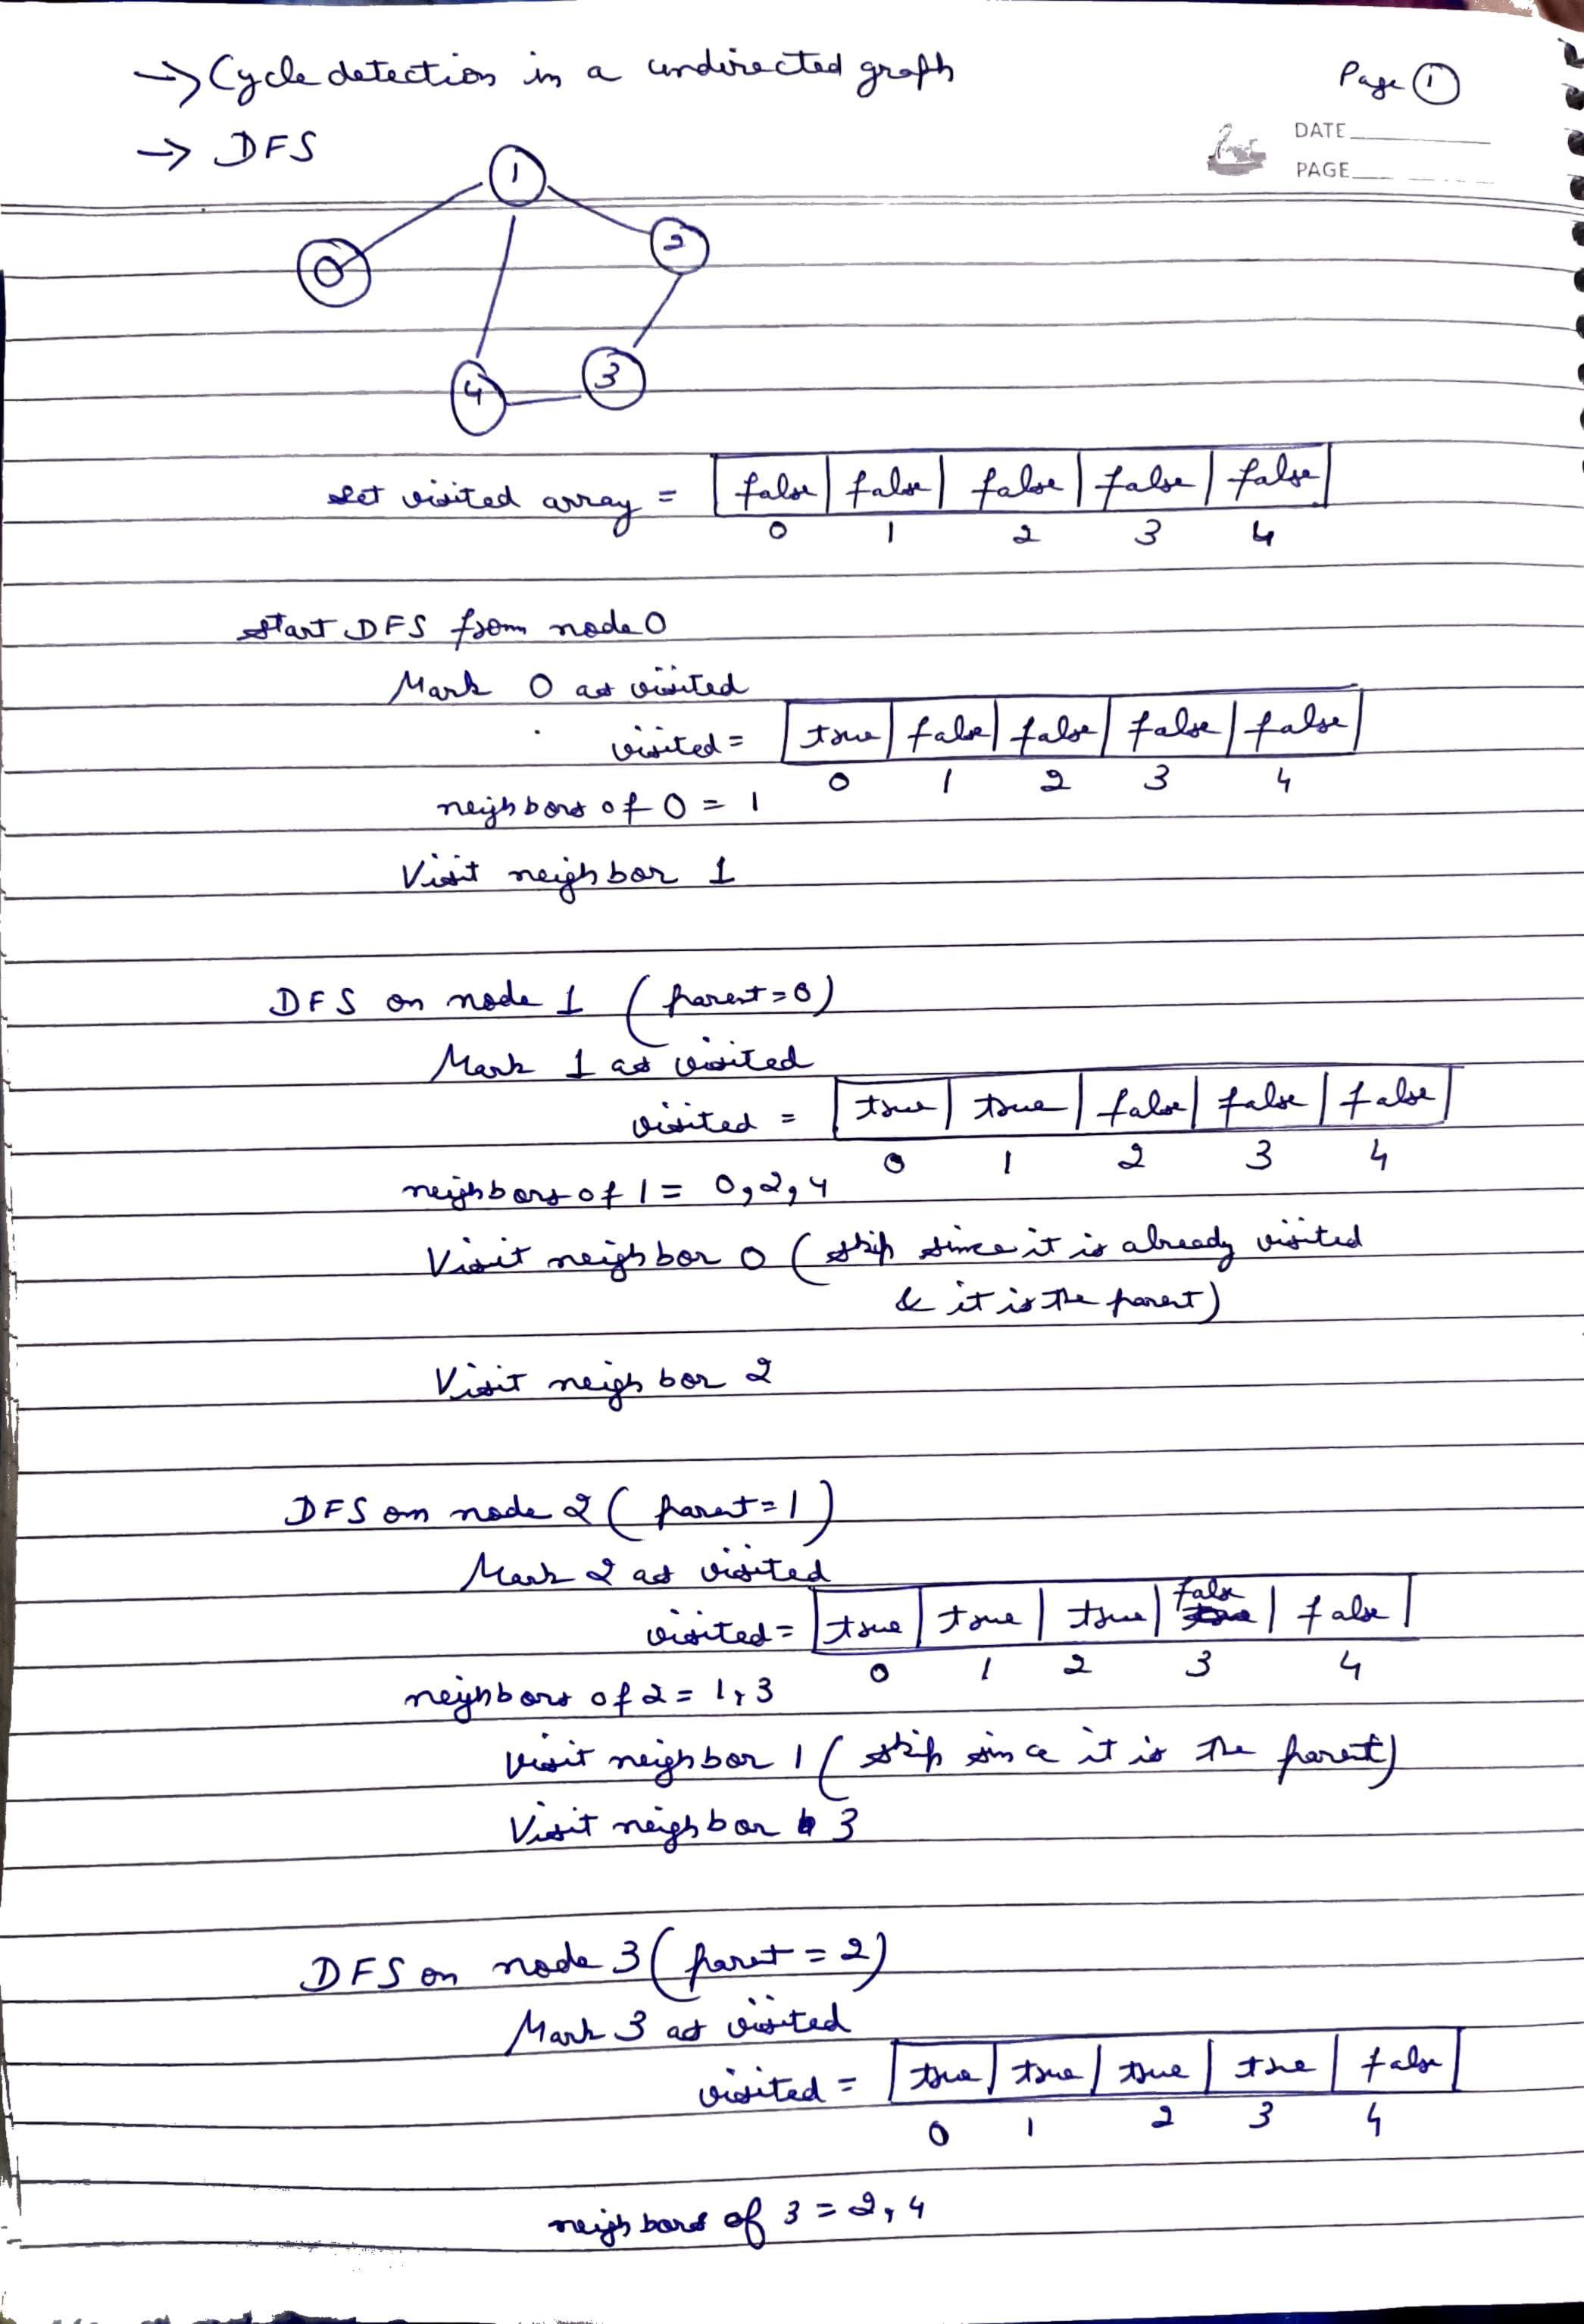 → Cycle detection in a undirected graph
Page ①
→ DFS
DATE
PAGE
1
2
0
3
4
set visited array = | false | false | false | false | false |
0 1 2 3 4
start DFS from node 0
Mark 0 as visited
visited = | true | false | false | false | false |
0 1 2 3 4
neighbors of 0 = 1
Visit neighbor 1
DFS on node 1 (parent=0)
Mark 1 as visited
visited = | true | true | false | false | false |
0 1 2 3 4
neighbors of 1 = 0,2,4
Visit neighbor 0 (skip since it is already visited
& it is the parent)
Visit neighbor 2
DFS on node 2 (parent=1)
Mark 2 as visited
visited = | true | true | true | false | false |
0 1 2 3 4
neighbors of 2 = 1,3
Visit neighbor 1 (skip since it is the parent)
Visit neighbor 3
DFS on node 3 (parent = 2)
Mark 3 as visited
visited = | true | true | true | true | false |
0 1 2 3 4
neighbors of 3 = 2,4